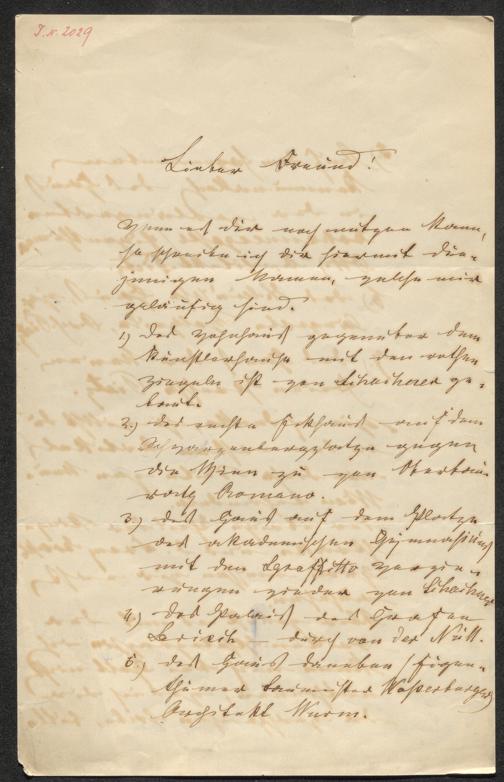 I. N. 2029
Lieber Freund!
Wenn es dir noch nützen kann,
so schreibe ich dir hiermit die-
jenigen Namen, welche mir
geläufig sind.
1) Das Wohnhaus gegenüber dem
Künstlerhause mit den rothen
Ziegeln ist von Tischer ge-
baut.
2.) das rechte Eckhaus auf dem
Schwarzenbergplatze gegen
die Wien zu von Oberbau-
rath Romano.
3.) das Haus auf dem Platze
des akademischen Gymnasiums
mit den Sgraffitto verzie-
rungen wieder von
4.) das Palais des Grafen
durch van der Nüll.
5.) das Haus daneben (Eigen-
thümer Baumeister Wasserburger)
Architekt Wurm.